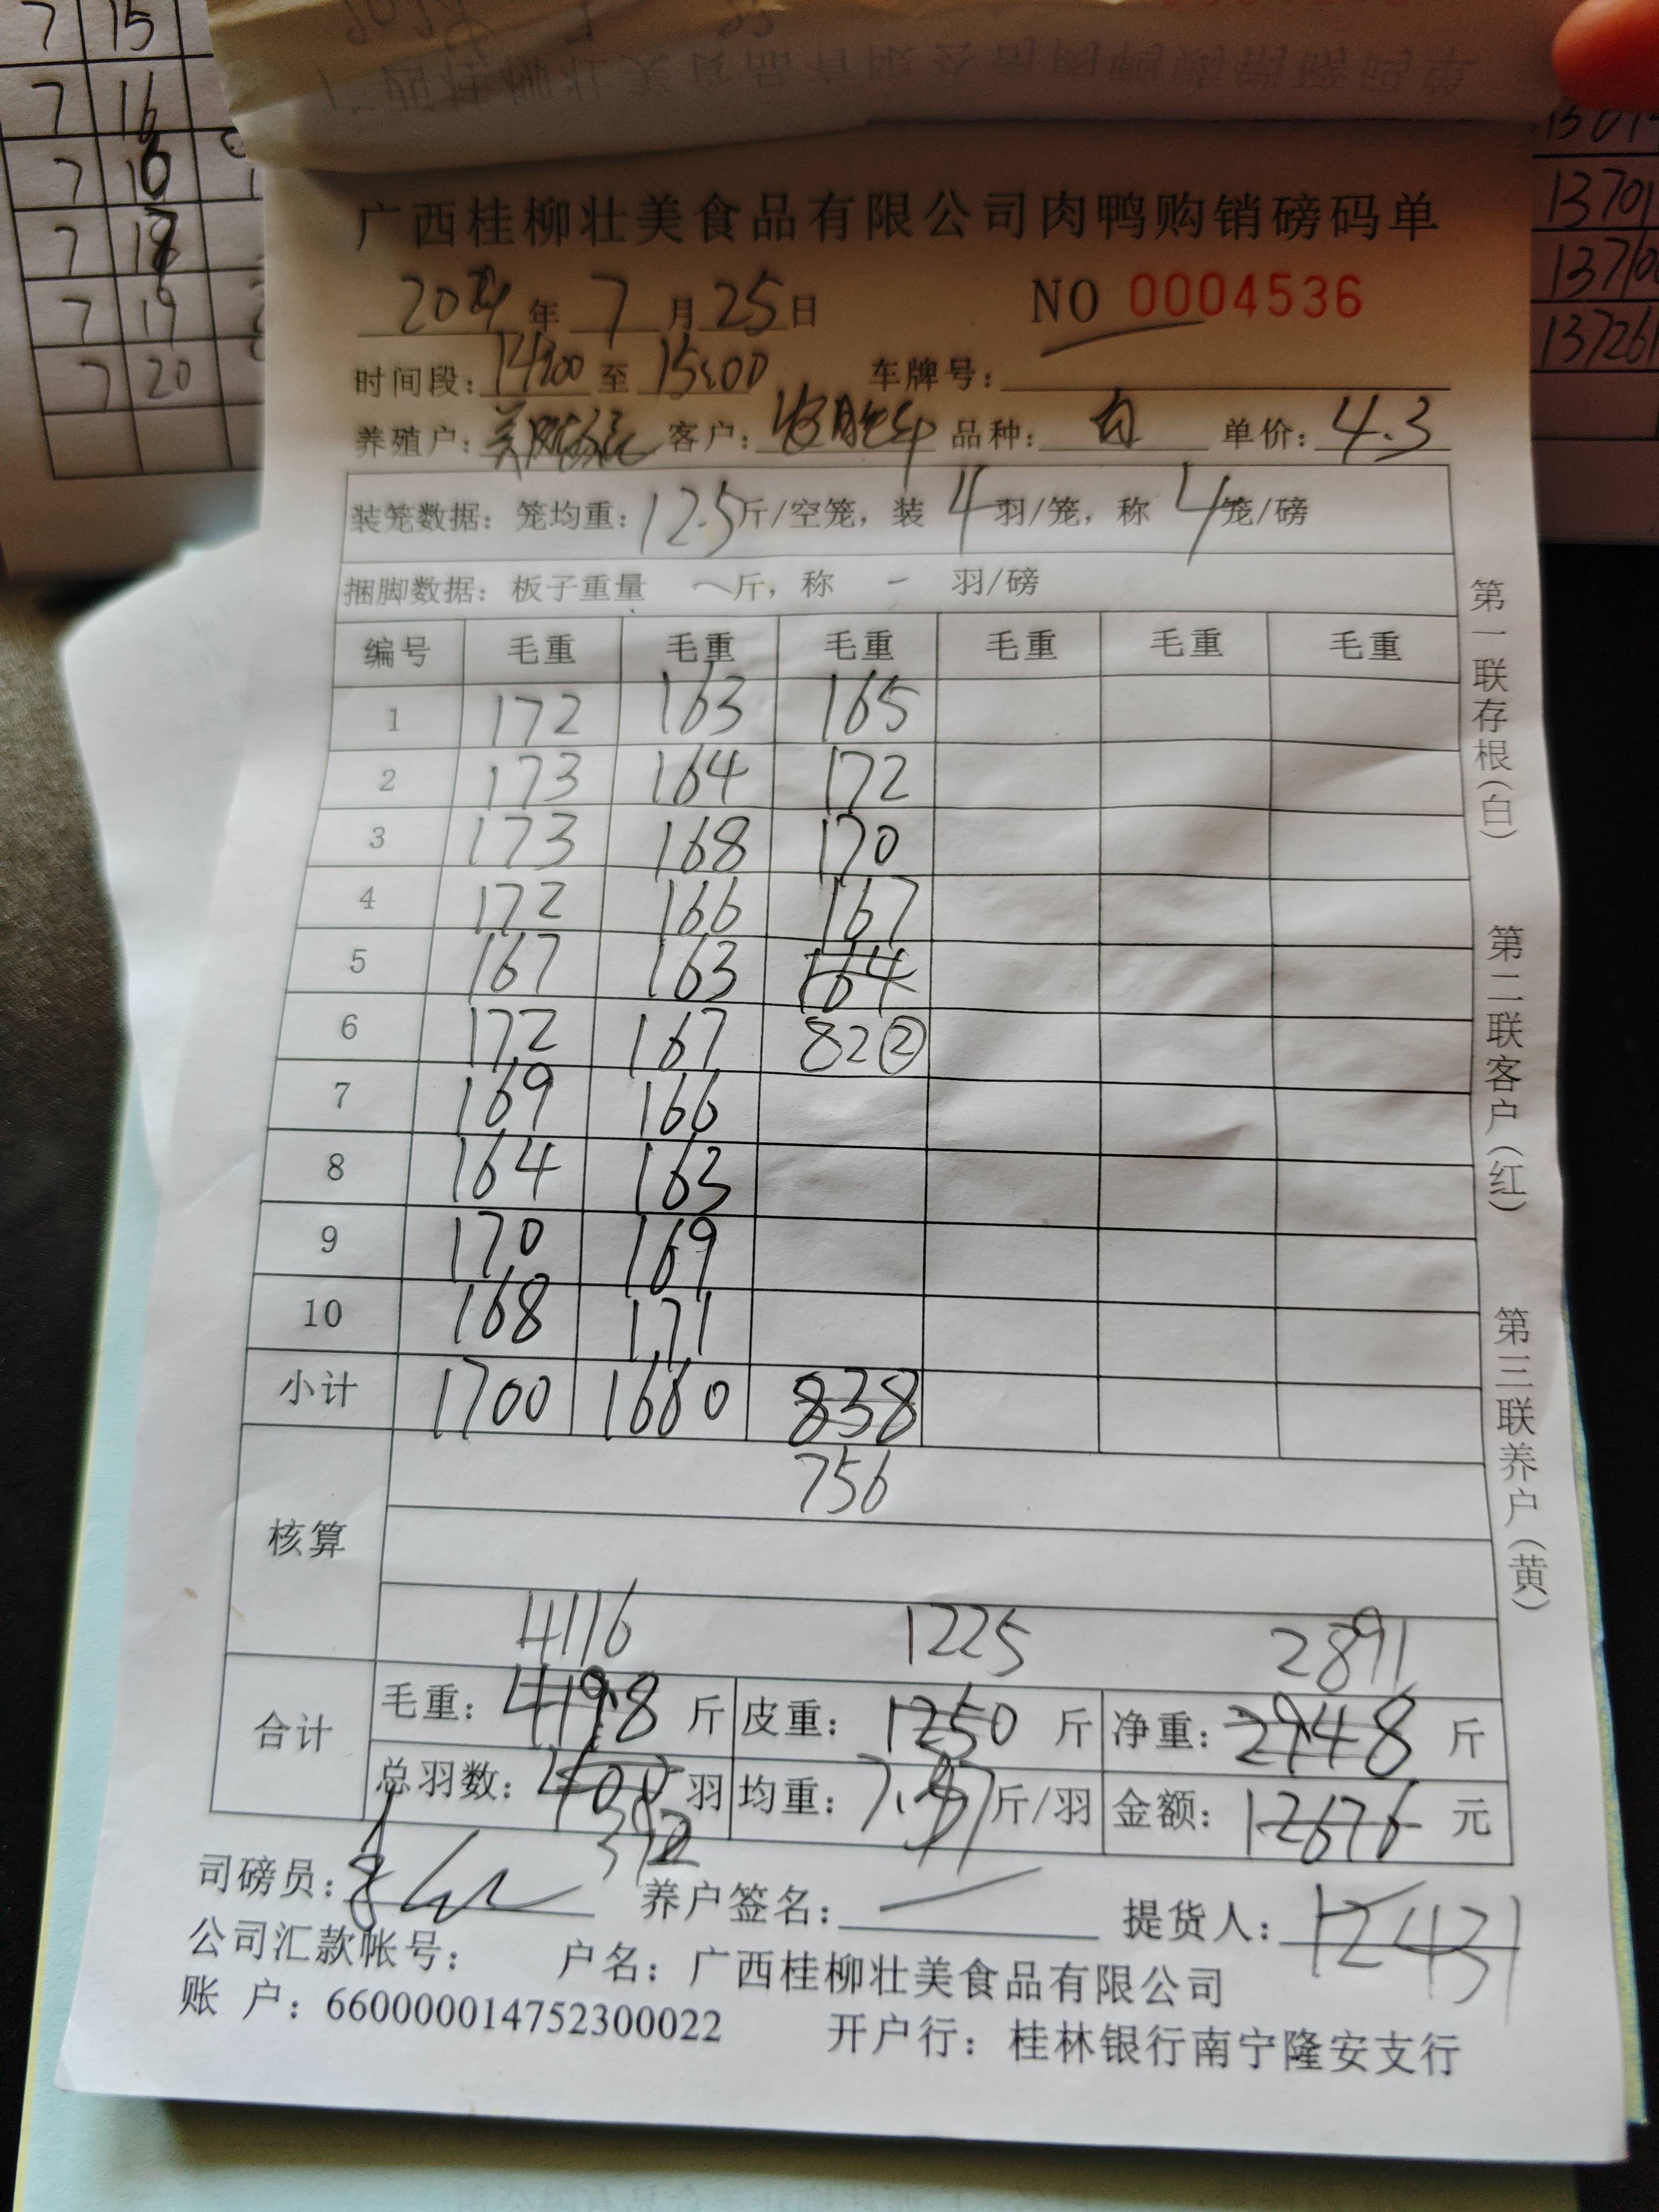 7 15
7 16
7
7
7 19
7 20
13701
13710
137261
广西桂柳壮美食品有限公司肉鸭购销磅码单
2024年 7月25日 NO 0004536
时间段: 14:00 至 15:00 车牌号:
养殖户: 客户: 品种: 白 单价: 4.3
装笼数据: 笼均重: 12.5斤/空笼, 装 4 羽/笼, 称 4笼/磅
捆脚数据: 板子重量 —斤, 称 — 羽/磅
编号 毛重 毛重 毛重 毛重 毛重 毛重
1 172 163 165
2 173 164 172
3 173 168 170
4 172 166 167
5 167 163 164
6 172 167 82②
7 169 166
8 164 163
9 170 169
10 168 171
小计 1700 1660 838
756
核算
4116 1225 2891
合计 毛重: 4198 斤 皮重: 1250 斤 净重: 2948 斤
总羽数: 400 羽 均重: 7.37斤/羽 金额: 12676 元
392
司磅员: 养户签名: 提货人: 12431
公司汇款帐号: 户名: 广西桂柳壮美食品有限公司
账 户: 660000014752300022 开户行: 桂林银行南宁隆安支行
第一联存根(白) 第二联客户(红) 第三联养户(黄)